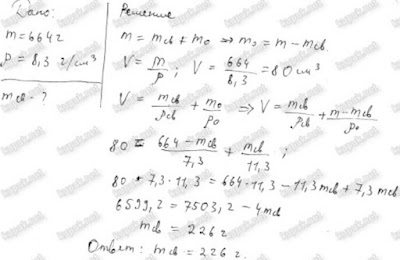 Дано:
m=664г
ρ = 8,3 г/см³
mсв - ?
Решение
m = mсв + mо => mо = m - mсв.
V = m/ρ ; V = 664/8,3 = 80 см³
V = mсв/ρсв + mо/ρо => V = mсв/ρсв + m-mсв/ρо
80 = 664 - mсв/7,3 + mсв/11,3 ;
80 • 7,3 • 11,3 = 664 • 11,3 - 11,3 mсв + 7,3 mсв
6599,2 = 7503,2 - 4mсв
mсв = 226 г
Ответ: mсв = 226 г.